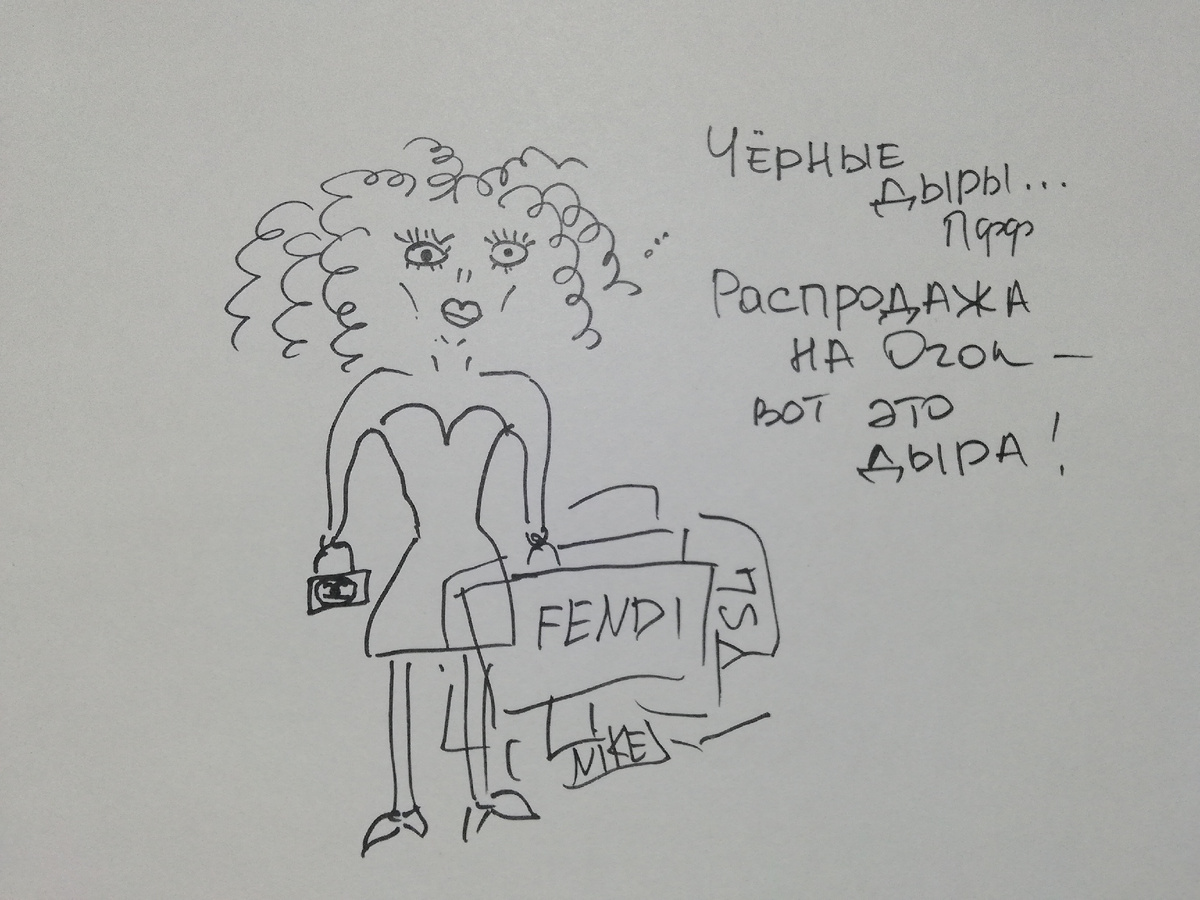 Чёрные
дыры...
Пффф
Распродажа
на Ozon —
вот это
дыра!
FENDI
YSL
NIKE